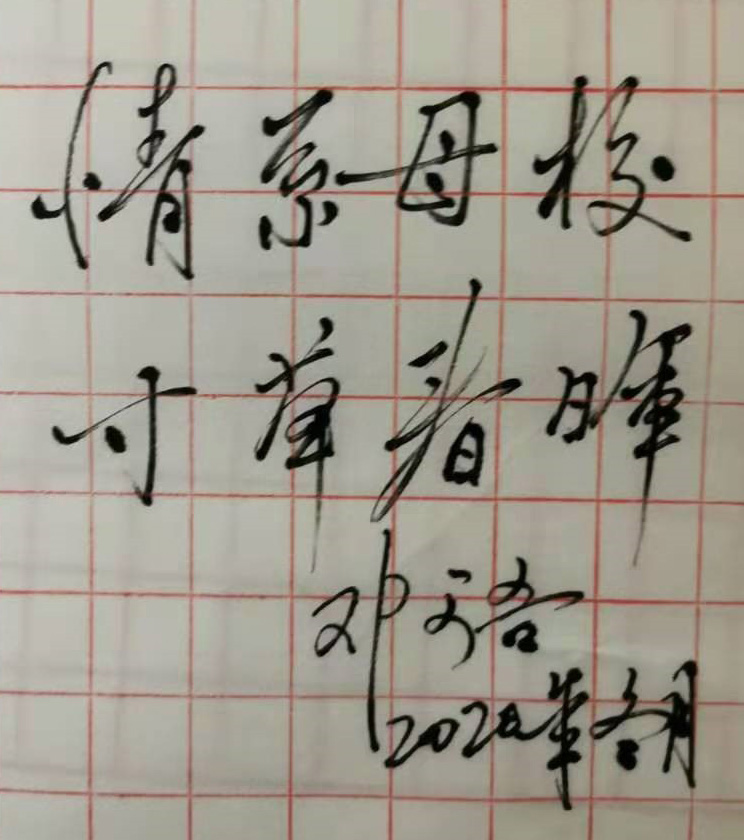 情系母校
寸草春晖
邓
2020年冬月